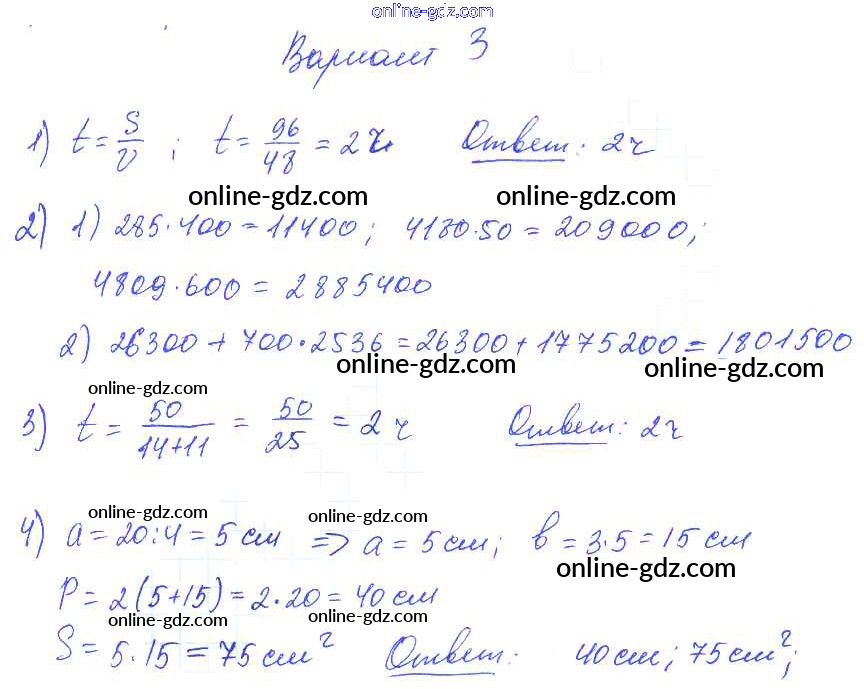 online-gdz.com
Вариант 3
1) t = S/v ; t = 96/48 = 2 ч. Ответ: 2 ч
online-gdz.com online-gdz.com
2) 1) 285·400 = 11400; 4180·50 = 209000;
4809·600 = 2885400
2) 26300 + 700·2536 = 26300 + 1775200 = 1801500
online-gdz.com online-gdz.com
online-gdz.com
3) t = 50/(14+11) = 50/25 = 2 ч Ответ: 2 ч
online-gdz.com online-gdz.com
4) a = 20:4 = 5 см => a = 5 см; b = 3·5 = 15 см
online-gdz.com
P = 2(5+15) = 2·20 = 40 см
online-gdz.com online-gdz.com
S = 5·15 = 75 см² Ответ: 40 см; 75 см²;